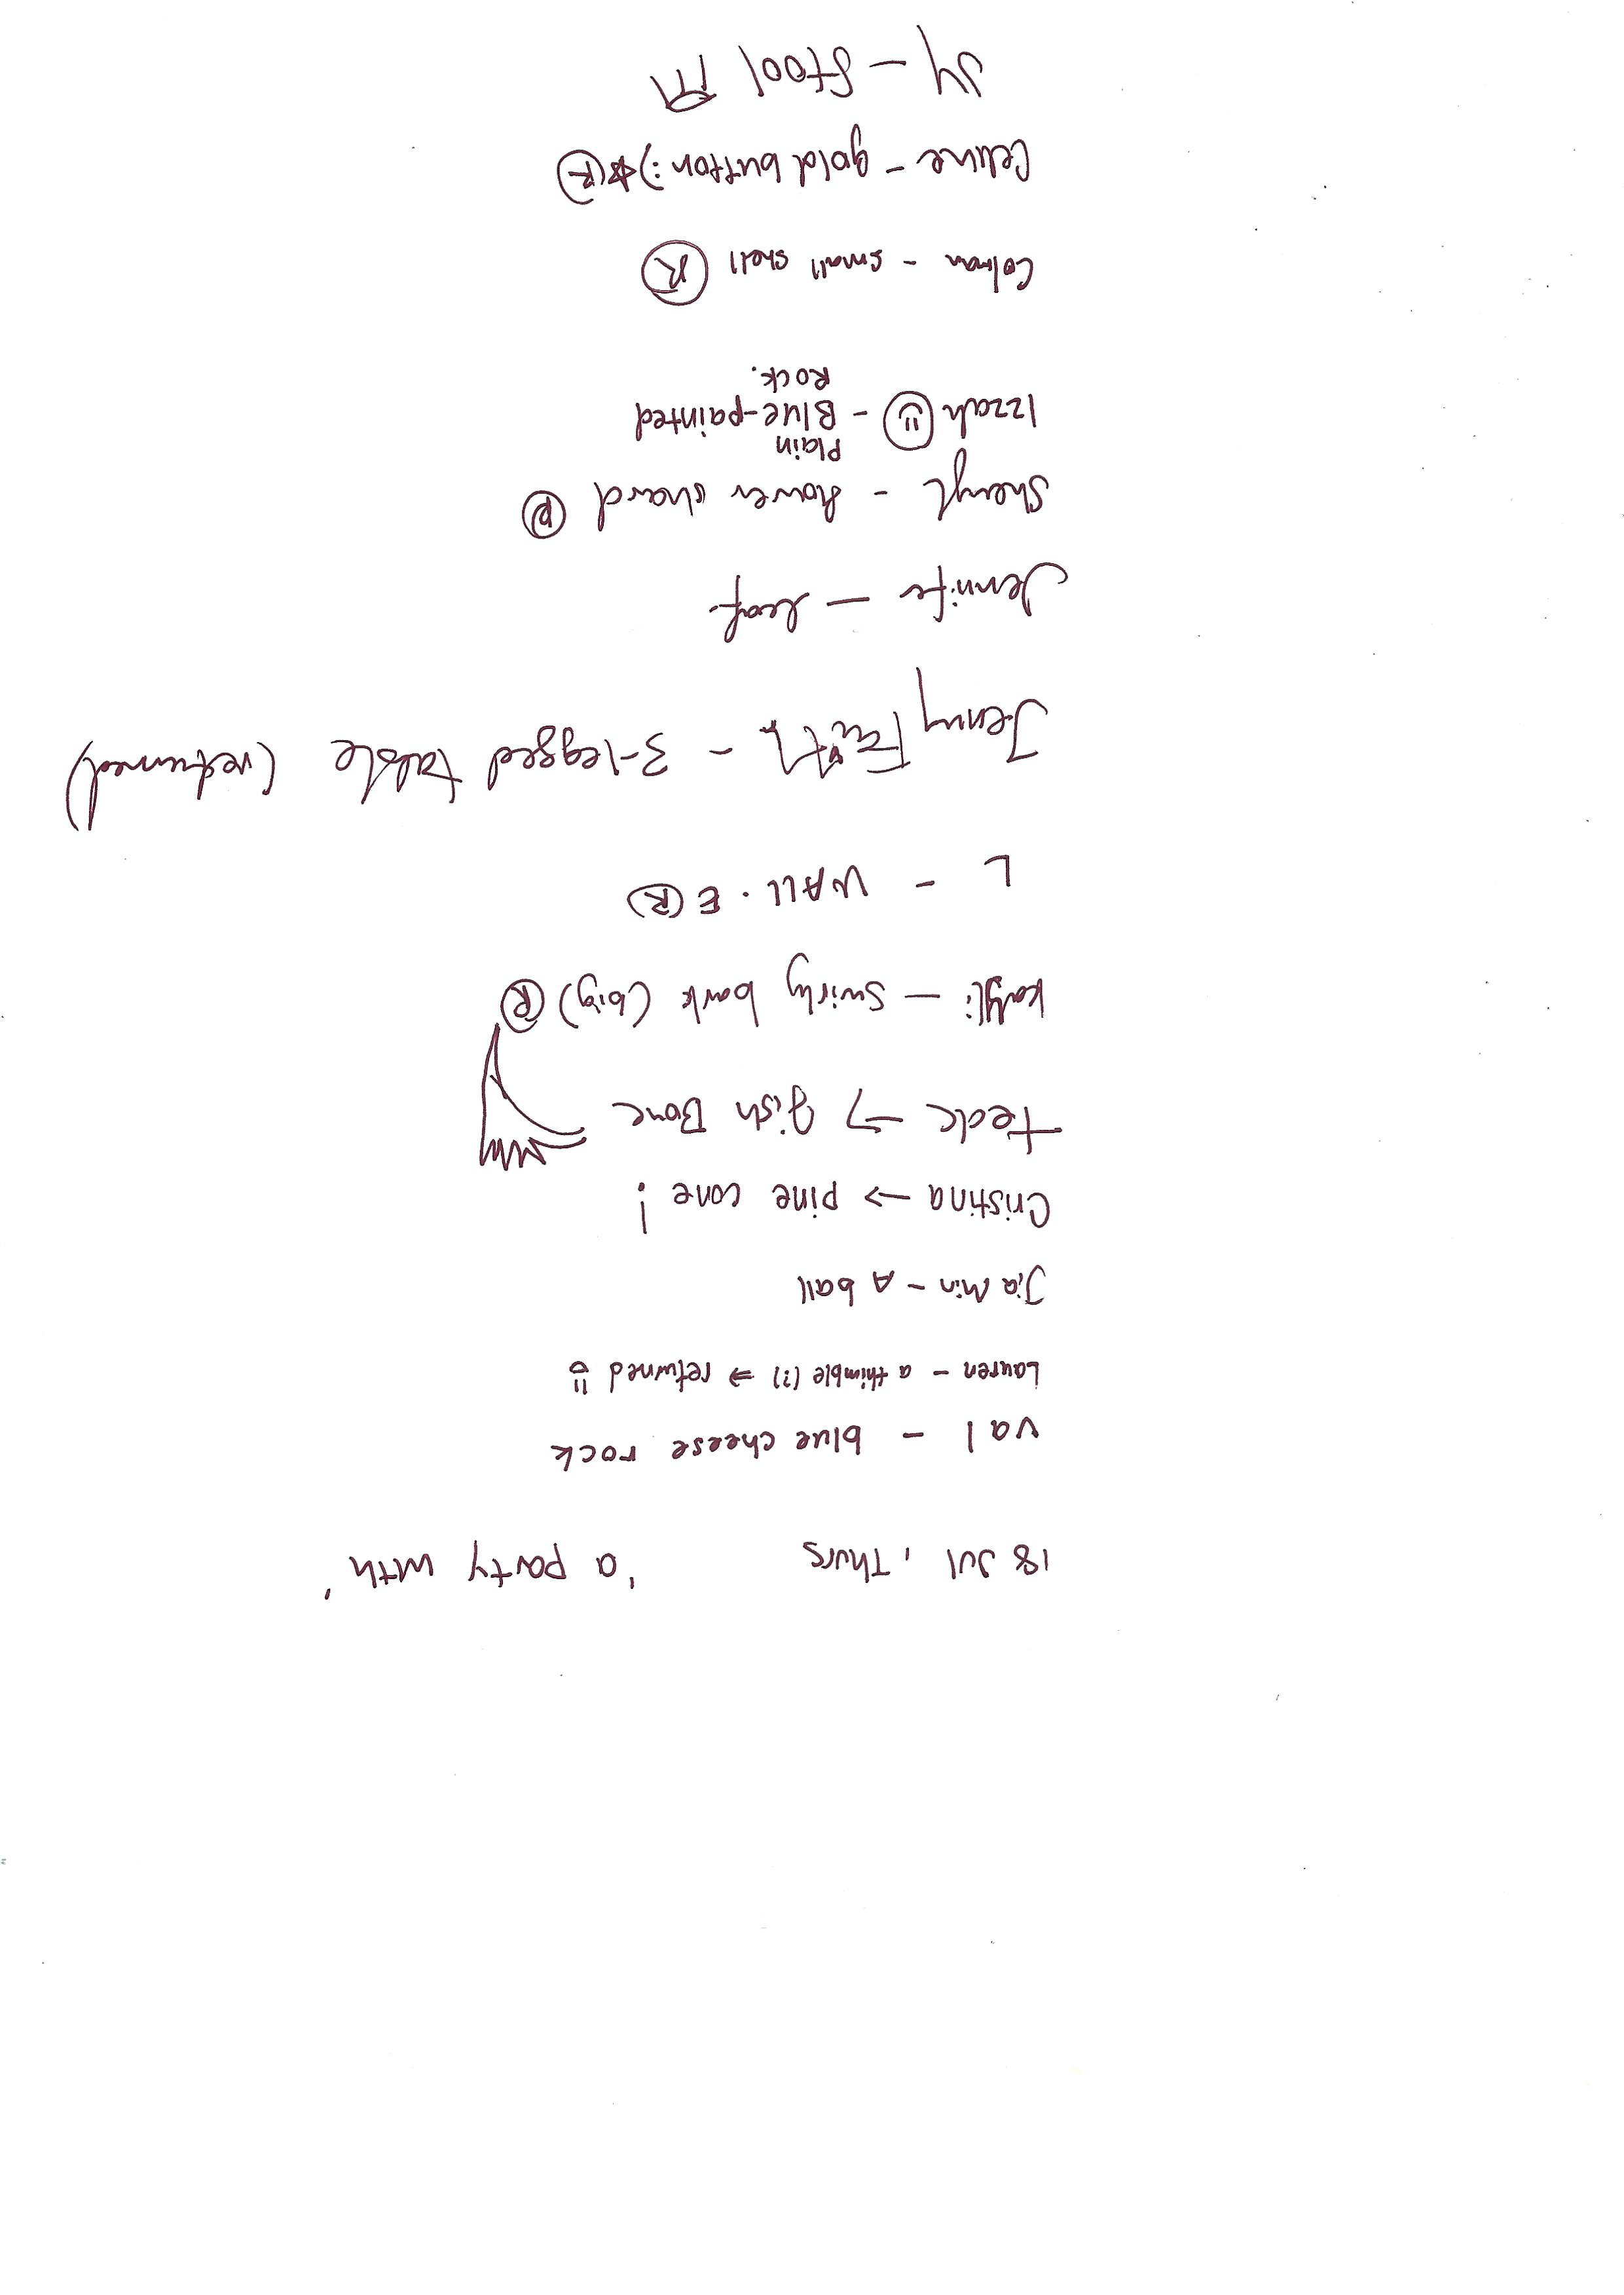 18 Jul, Thurs 'a party with'
val - blue cheese rock
Lauren - a thimble (?) ⇒ returned
Jia Min - A ball
Cristina → pine cone !
teck → fish Bone
kayli — swirly bark (big) Ⓡ
L - WALL·E Ⓡ
Jenny Faith - 3-legged table (returned)
Jennifer — leaf.
Sheryl - flower shard Ⓡ
Plain
Izzah - Blue-painted
Rock.
Colman - small shell Ⓡ
Celine - gold button :) ☆ Ⓡ
JY — Stool